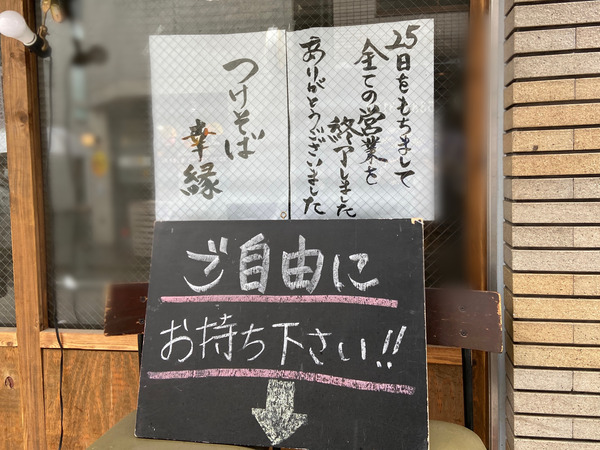 25日をもちまして
全ての営業を
終了しました
ありがとうございました
つけそば
幸縁
ご自由に
お持ち下さい!!